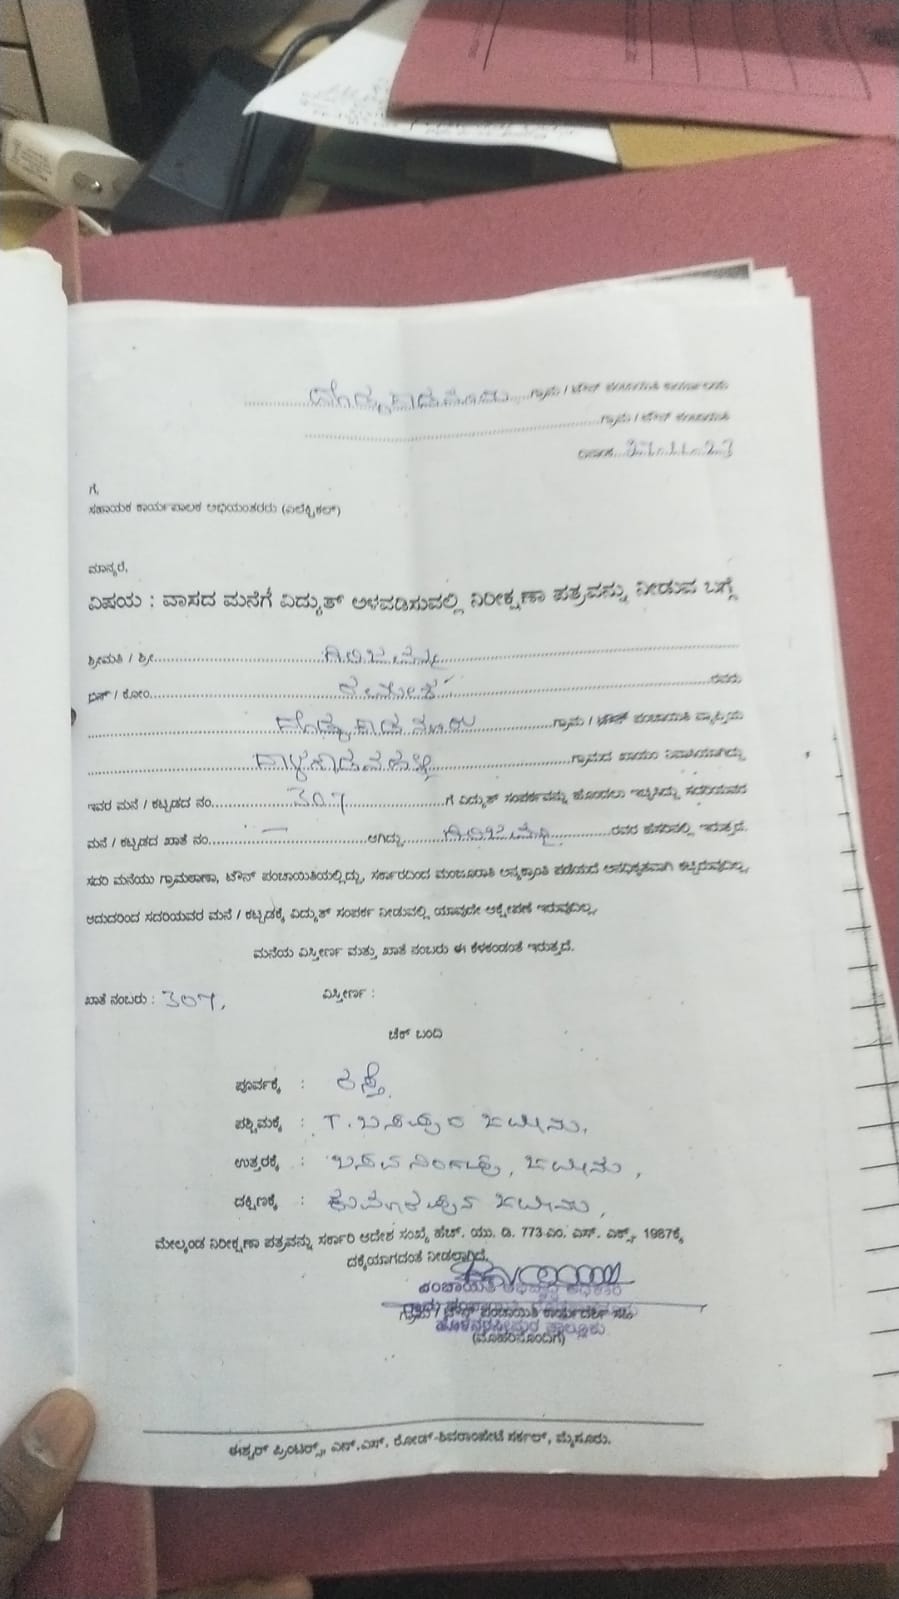 ದೊಡ್ಡಕಾಡನೂರು ಗ್ರಾಮ / ಟೌನ್ ಪಂಚಾಯಿತಿ ಕಾರ್ಯಾಲಯ
ಗ್ರಾಮ / ಟೌನ್ ಪಂಚಾಯಿತಿ
ದಿನಾಂಕ 27.11.23
ಗೆ,
ಸಹಾಯಕ ಕಾರ್ಯಪಾಲಕ ಅಭಿಯಂತರರು (ಎಲೆಕ್ಟ್ರಿಕಲ್)
ಮಾನ್ಯರೆ,
ವಿಷಯ : ವಾಸದ ಮನೆಗೆ ವಿದ್ಯುತ್ ಅಳವಡಿಸುವಲ್ಲಿ ನಿರೀಕ್ಷಣಾ ಪತ್ರವನ್ನು ನೀಡುವ ಬಗ್ಗೆ
ಶ್ರೀಮತಿ / ಶ್ರೀ
ಬಿನ್ / ಕೋಂ ರಮೇಶ ರವರು
ದೊಡ್ಡಕಾಡನೂರು ಗ್ರಾಮ / ಟೌನ್ ಪಂಚಾಯಿತಿ ವ್ಯಾಪ್ತಿಯ
ಗ್ರಾಮದ ಖಾಯಂ ನಿವಾಸಿಯಾಗಿದ್ದು
ಇವರ ಮನೆ / ಕಟ್ಟಡದ ನಂ 307 ಗೆ ವಿದ್ಯುತ್ ಸಂಪರ್ಕವನ್ನು ಹೊಂದಲು ಇಚ್ಛಿಸಿದ್ದು ಸದರಿಯವರ
ಮನೆ / ಕಟ್ಟಡದ ಖಾತೆ ನಂ — ಆಗಿದ್ದು ರವರ ಹೆಸರಿನಲ್ಲಿ ಇರುತ್ತದೆ.
ಸದರಿ ಮನೆಯು ಗ್ರಾಮಠಾಣಾ, ಟೌನ್ ಪಂಚಾಯಿತಿಯಲ್ಲಿದ್ದು, ಸರ್ಕಾರದಿಂದ ಮಂಜೂರಾತಿ ಅನ್ಯಕ್ರಾಂತಿ ಪಡೆಯದೆ ಅನಧಿಕೃತವಾಗಿ ಕಟ್ಟಿರುವುದಿಲ್ಲ,
ಆದುದರಿಂದ ಸದರಿಯವರ ಮನೆ / ಕಟ್ಟಡಕ್ಕೆ ವಿದ್ಯುತ್ ಸಂಪರ್ಕ ನೀಡುವಲ್ಲಿ ಯಾವುದೇ ಆಕ್ಷೇಪಣೆ ಇರುವುದಿಲ್ಲ.
ಮನೆಯ ವಿಸ್ತೀರ್ಣ ಮತ್ತು ಖಾತೆ ನಂಬರು ಈ ಕೆಳಕಂಡಂತೆ ಇರುತ್ತದೆ.
ಖಾತೆ ನಂಬರು : 307, ವಿಸ್ತೀರ್ಣ :
ಚೆಕ್ ಬಂದಿ
ಪೂರ್ವಕ್ಕೆ : ರಸ್ತೆ.
ಪಶ್ಚಿಮಕ್ಕೆ : T. ಬಸಪ್ಪರ ಜಮೀನು,
ಉತ್ತರಕ್ಕೆ : ಬಸವನಿಂಗಪ್ಪ, ಜಮೀನು,
ದಕ್ಷಿಣಕ್ಕೆ : ಜಮೀನು,
ಮೇಲ್ಕಂಡ ನಿರೀಕ್ಷಣಾ ಪತ್ರವನ್ನು ಸರ್ಕಾರಿ ಆದೇಶ ಸಂಖ್ಯೆ ಹೆಚ್. ಯು. ಡಿ. 773 ಎಂ. ಎನ್. ಎಕ್ಸ್. 1987ಕ್ಕೆ
ದಕ್ಕೆಯಾಗದಂತೆ ನೀಡಲಾಗಿದೆ.
ಪಂಚಾಯಿತಿ ಅಭಿವೃದ್ಧಿ ಅಧಿಕಾರಿ
ಗ್ರಾಮ / ಟೌನ್ ಪಂಚಾಯಿತಿ ಕಾರ್ಯದರ್ಶಿ ಸಹಿ
ಹೊಳೆನರಸೀಪುರ ತಾಲ್ಲೂಕು
(ಮೊಹರಿನೊಂದಿಗೆ)
ಈಶ್ವರ್ ಪ್ರಿಂಟರ್ಸ್, ಎನ್.ಎಸ್. ರೋಡ್-ಶಿವರಾಂಪೇಟೆ ಸರ್ಕಲ್, ಮೈಸೂರು.